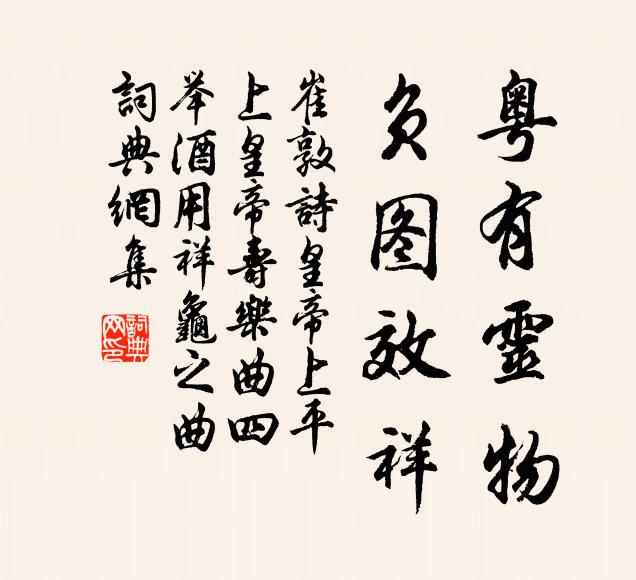 粤有靈物
負图效祥
崔敦詩皇帝上平
上皇帝壽樂曲四
举酒用祥龜之曲
詞典網集
詞典网印